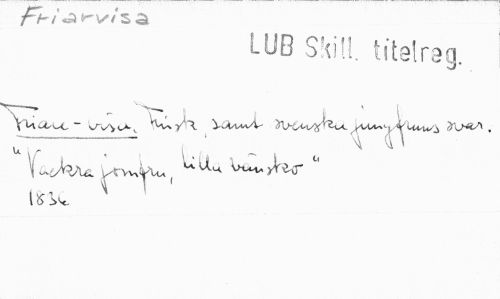 Friarvisa
LUB Skill. titelreg.
Friare-visa, Finsk, samt svenska jungfruns svar.
"Vackra jomfru, lilla vänsko"
1836